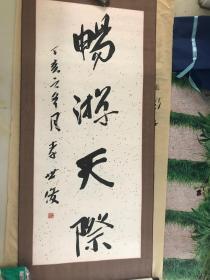 暢游天際
丁亥之年月李世俊